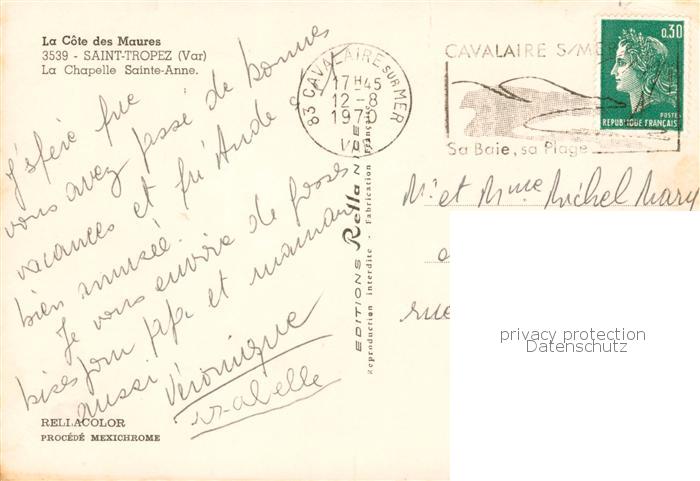 La Côte des Maures
3539 - SAINT-TROPEZ (Var)
La Chapelle Sainte-Anne.
J'sfère que
vous avez passé de bonnes
vacances et que Aude s'est
bien amusée.
Je vous envoie de grosses
bises, papa et maman
aussi
Véronique
Isabelle
RELLACOLOR
PROCÉDÉ MEXICHROME
EDITIONS Rella NICE
Reproduction interdite - Fabrication Française
83 CAVALAIRE SUR MER
17H45
12-8
1970
VAR
CAVALAIRE S/MER
Sa Baie, sa Plage
0,30
POSTES
REPUBLIQUE FRANÇAISE
Mr et Mme Michel Mary
rue
privacy protection
Datenschutz